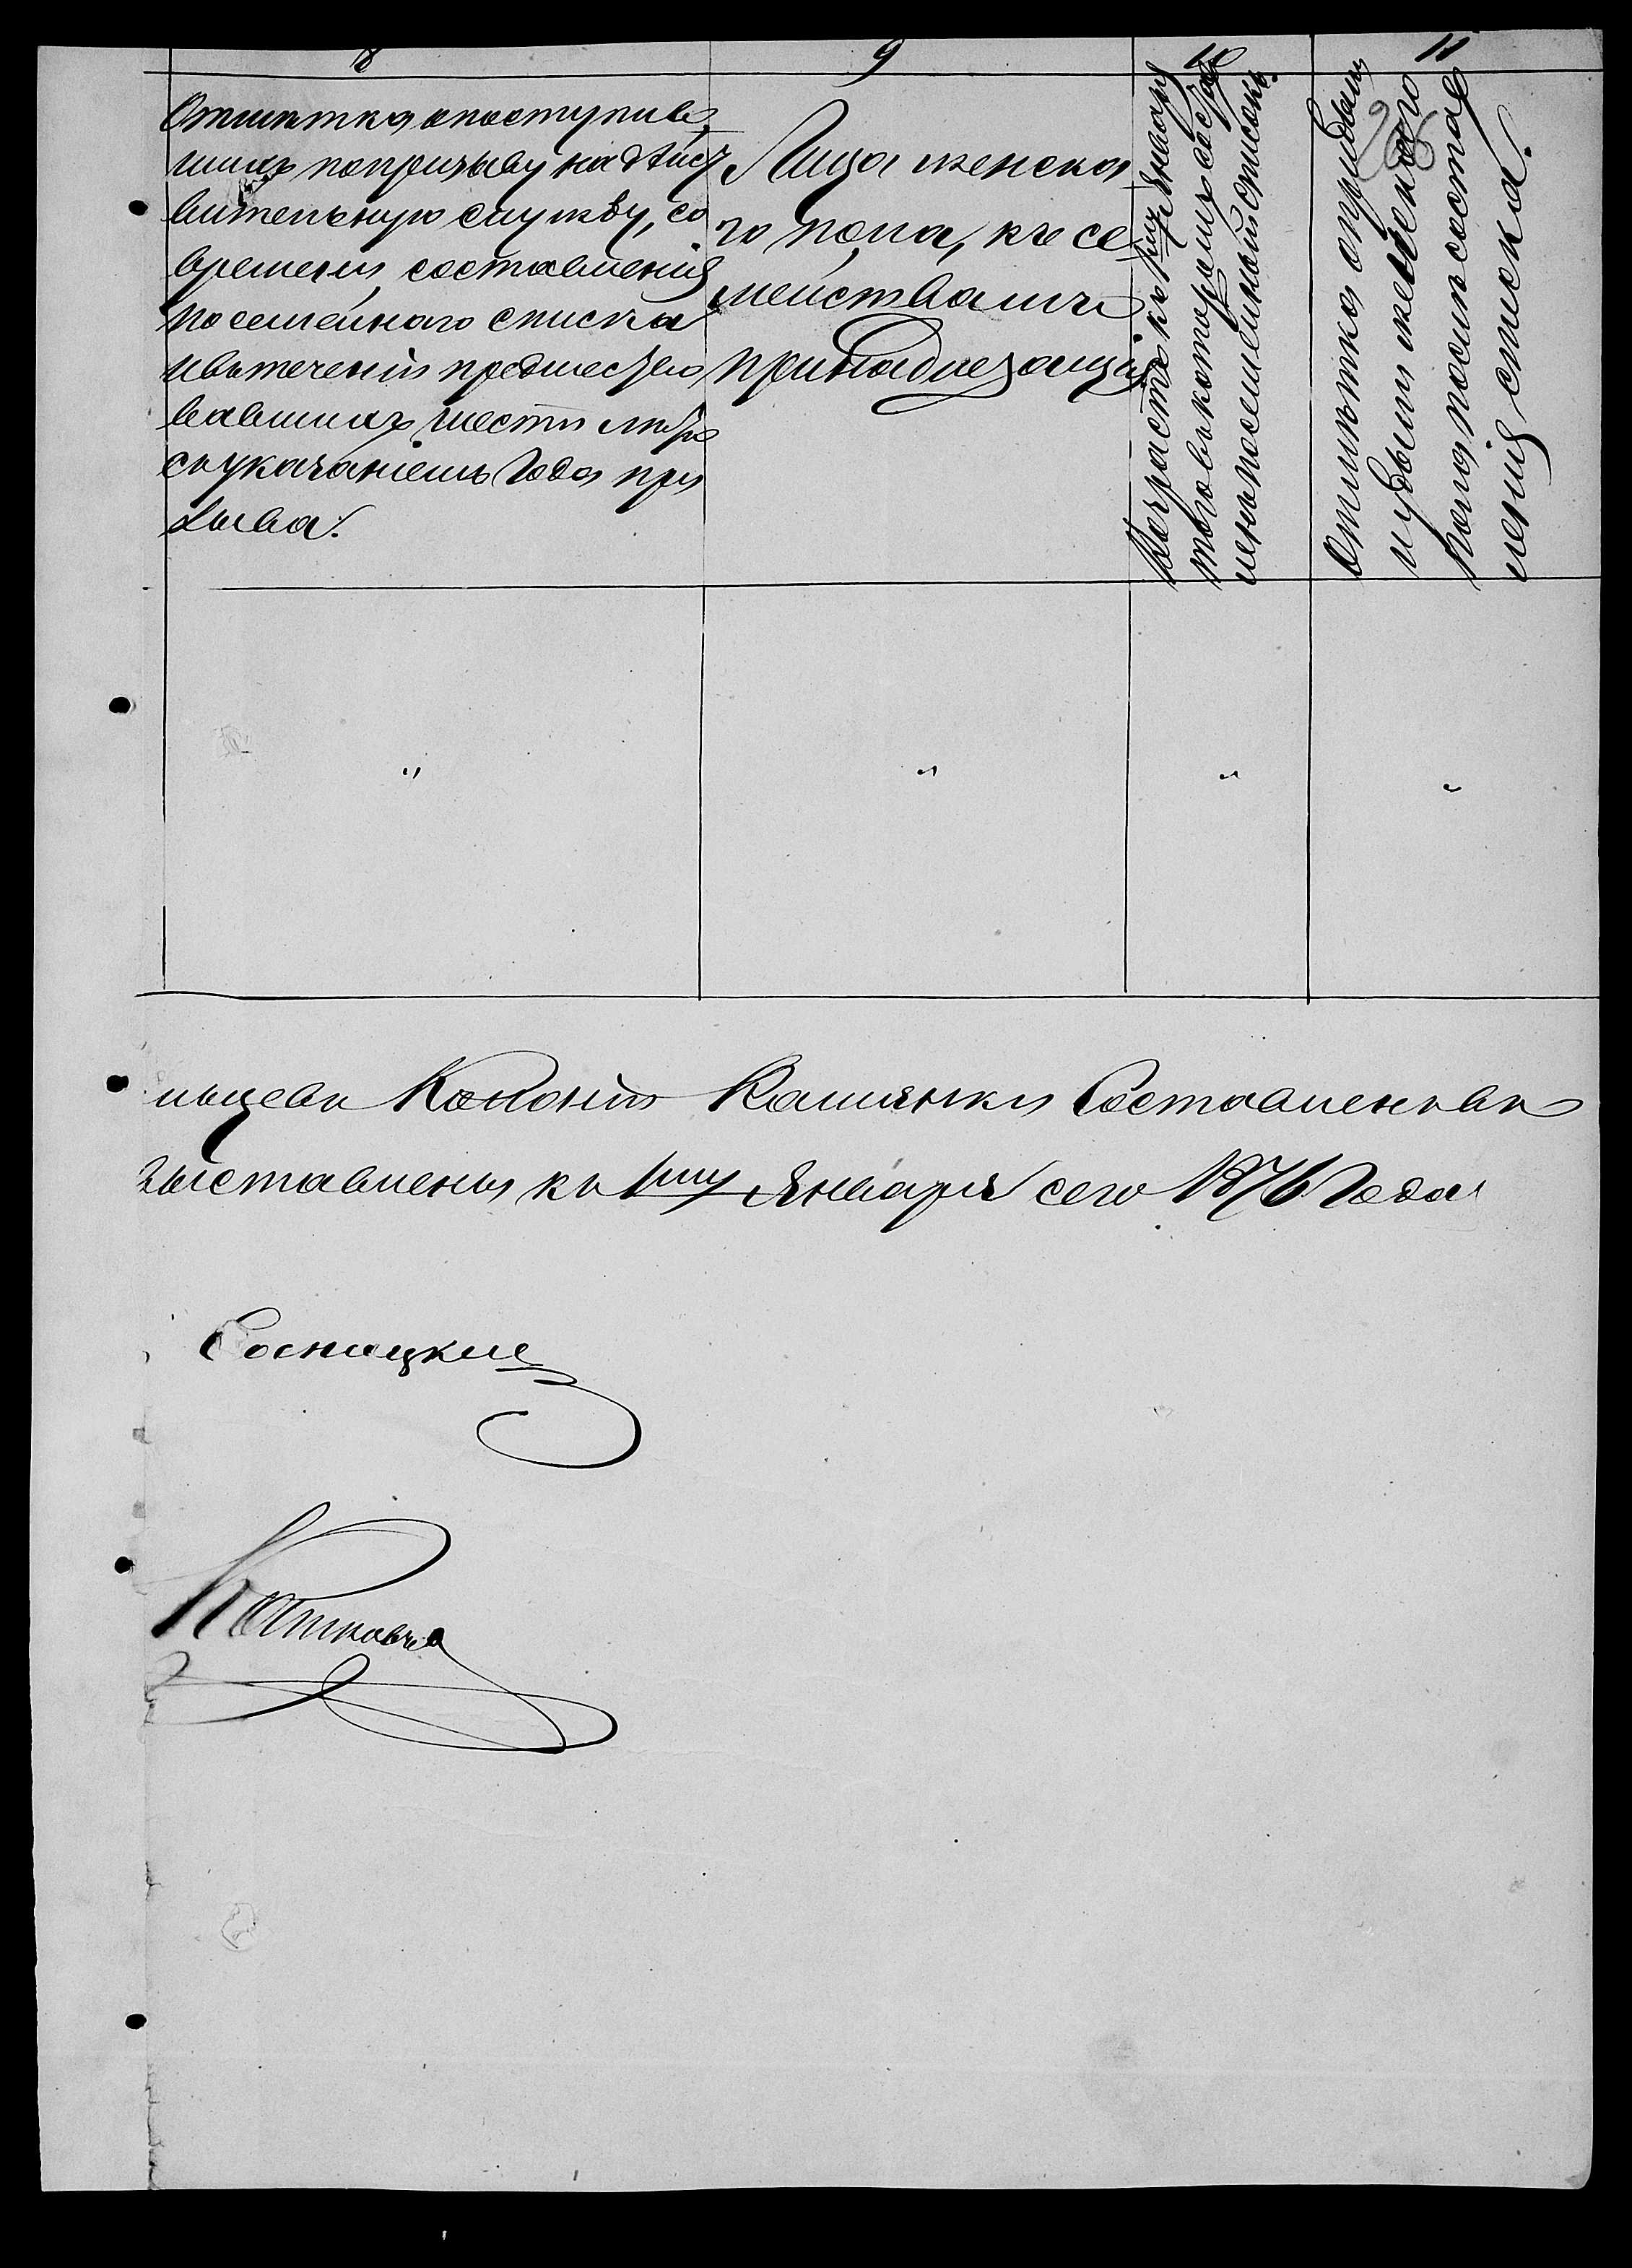 8
Отмѣтка о поступив
шихъ по призыву на дѣйст
вительную службу, со
времени составленія
посемейнаго списка
и въ теченіи предшество
вавшихъ шести лѣтъ
съ указаніемъ года при
зыва.
9
Лица женска
го пола, къ се
мействамъ
принадлежащія
10
Возрастъ къ 1му Января
того въ которомъ состав
ленъ посемейный списокъ.
11
Отмѣтка о прибыли
и убыли женскаго
пола, послѣ состав
ленія списка.
" " " "
льцевъ Колоніи Камянки Составленъ въ
ставлены къ 1му Января сего 1876 Года
Сосницкие